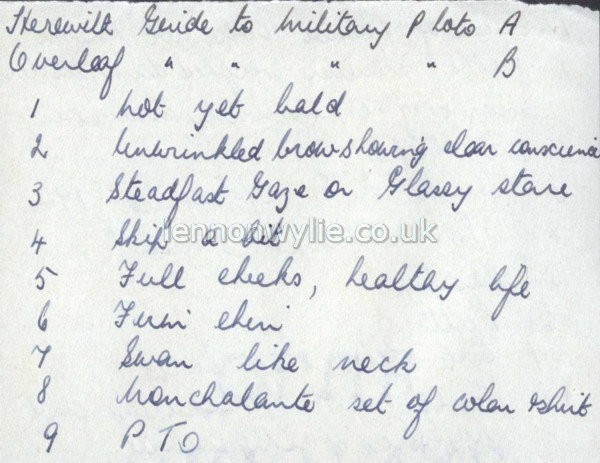 Herewith Guide to Military Photo A
Overleaf " " " " B
1 Not yet bald
2 Unwrinkled brow showing clear conscience
3 Steadfast Gaze or Glassy stare
4 Skip a bit
lennonwylie.co.uk
5 Full cheeks, healthy life
6 Firm chin
7 Swan like neck
8 Nonchalante set of colar & shirt
9 P T O